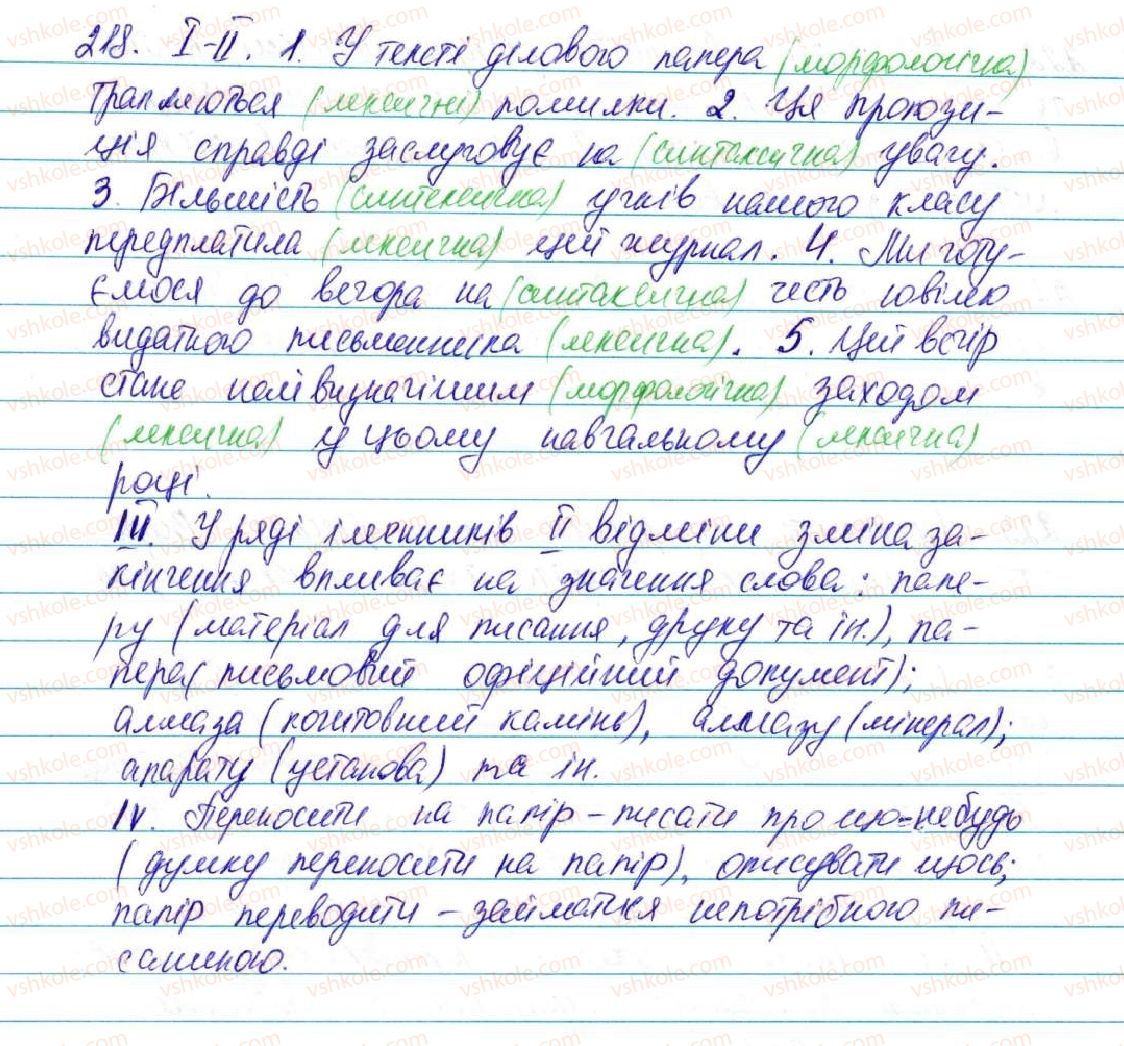 218. I-II. 1. У тексті ділового папера (морфологічна)
трапляються (лексичні) помилки. 2. Ця пропози-
ція справді заслуговує на (синтаксична) увагу.
3. Більшість (синтексична) учнів нашого класу
передплатила (лексична) цей журнал. 4. Ми готу-
ємося до вечора на (синтаксична) честь ювілею
видатного письменника (лексична). 5. Цей вечір
стане найвизначнішим (морфологічна) заходом
(лексична) у цьому навчальному (лексична)
році.
III. У ряді іменників II відміни зміна за-
кінчення впливає на значення слова: папе-
ру (матеріал для писання, друку та ін.), па-
пера (письмовий офіційний документ);
алмаза (коштовний камінь), алмазу (мінерал);
апарату (установа) та ін.
IV. Переносити на папір – писати про що-небудь
(думку переносити на папір), описувати щось;
папір переводити – займатися непотрібною пи-
саниною.